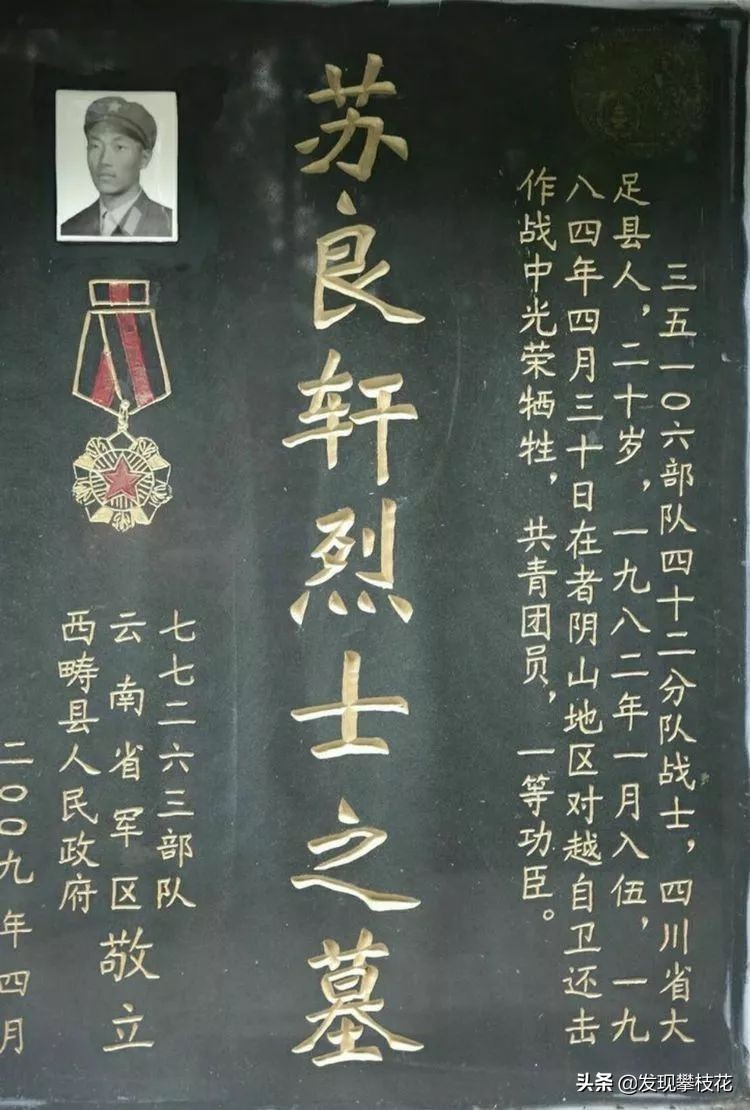 三五一〇六部队四十二分队战士，四川省大
足县人，二十岁，一九八二年一月入伍，一九
八四年四月三十日在者阴山地区对越自卫还击
作战中光荣牺牲，共青团员，一等功臣。
苏良轩烈士之墓
七七二六三部队
云南省军区敬立
西畴县人民政府
二〇〇九年四月
头条 @发现攀枝花